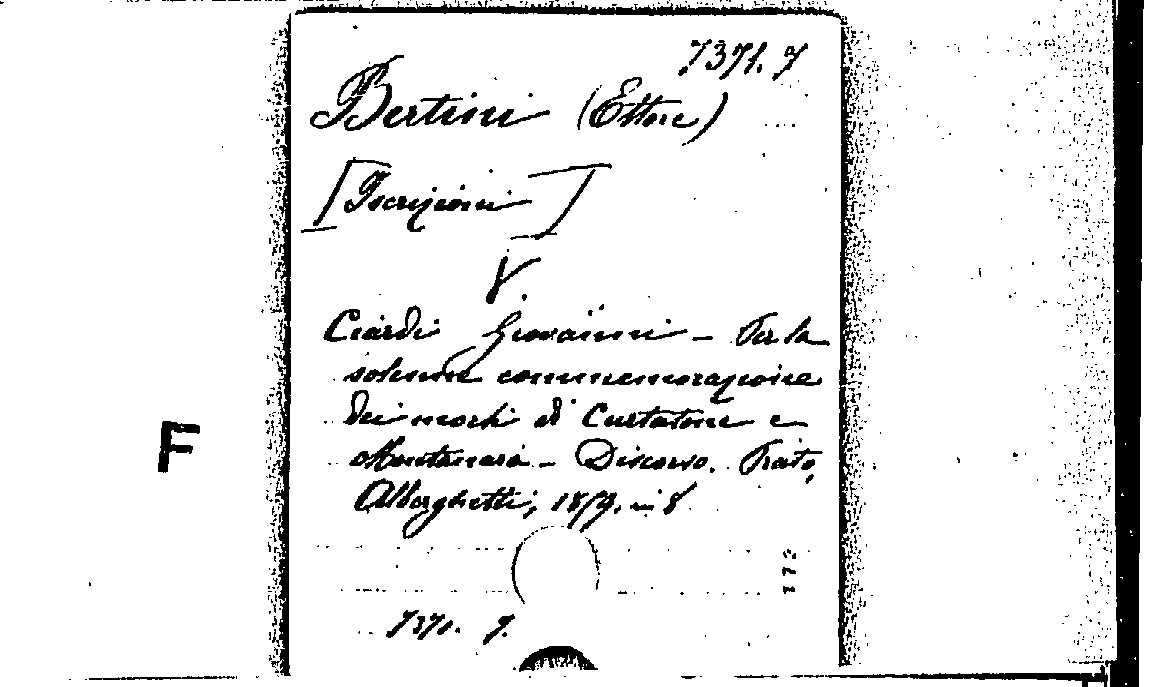 7371. 7
Bertini (Ettore)
[Iscrizioni]
V.
Ciardi Giovanni - Per la
solenne commemorazione
dei morti di Curtatone e
Montanara - Discorso. Prato,
Alberghetti, in 8
F
172
7371. 7.